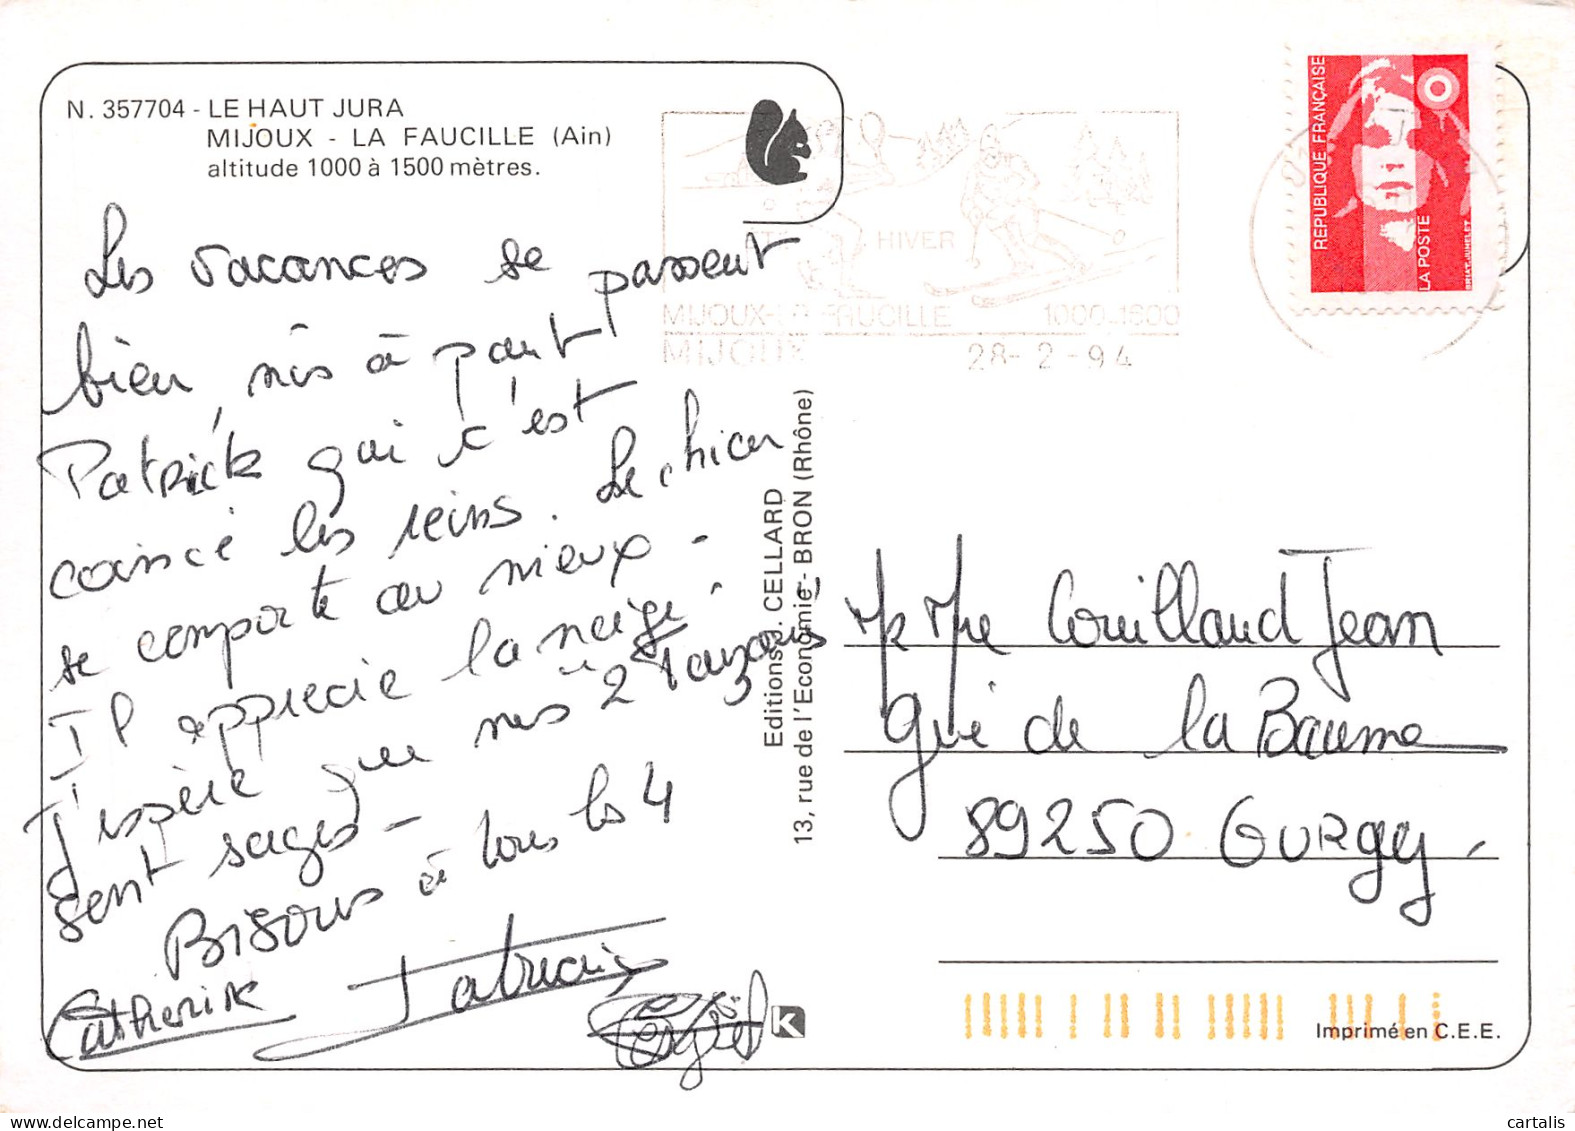 N. 357704 - LE HAUT JURA
MIJOUX - LA FAUCILLE (Ain)
altitude 1000 à 1500 mètres.
Les vacances se passent
bien, mis à part
Patrick qui s'est
coincé les reins. Le chien
se comporte au mieux -
Il apprécie la neige.
J'espère que nos 2
sont sages -
Bisous à tous les 4
Catherine Fabrice
HIVER
MIJOUX-LA FAUCILLE 1000-1600
MIJOUX 28-2-94
RÉPUBLIQUE FRANÇAISE
LA POSTE
BRIAT-JUMELET
Editions J. CELLARD
13, rue de l'Economie - BRON (Rhône)
Mr Mme Couillaud Jean
Gué de la Baume
89250 GURGY
K
Imprimé en C.E.E.
cartalis.com